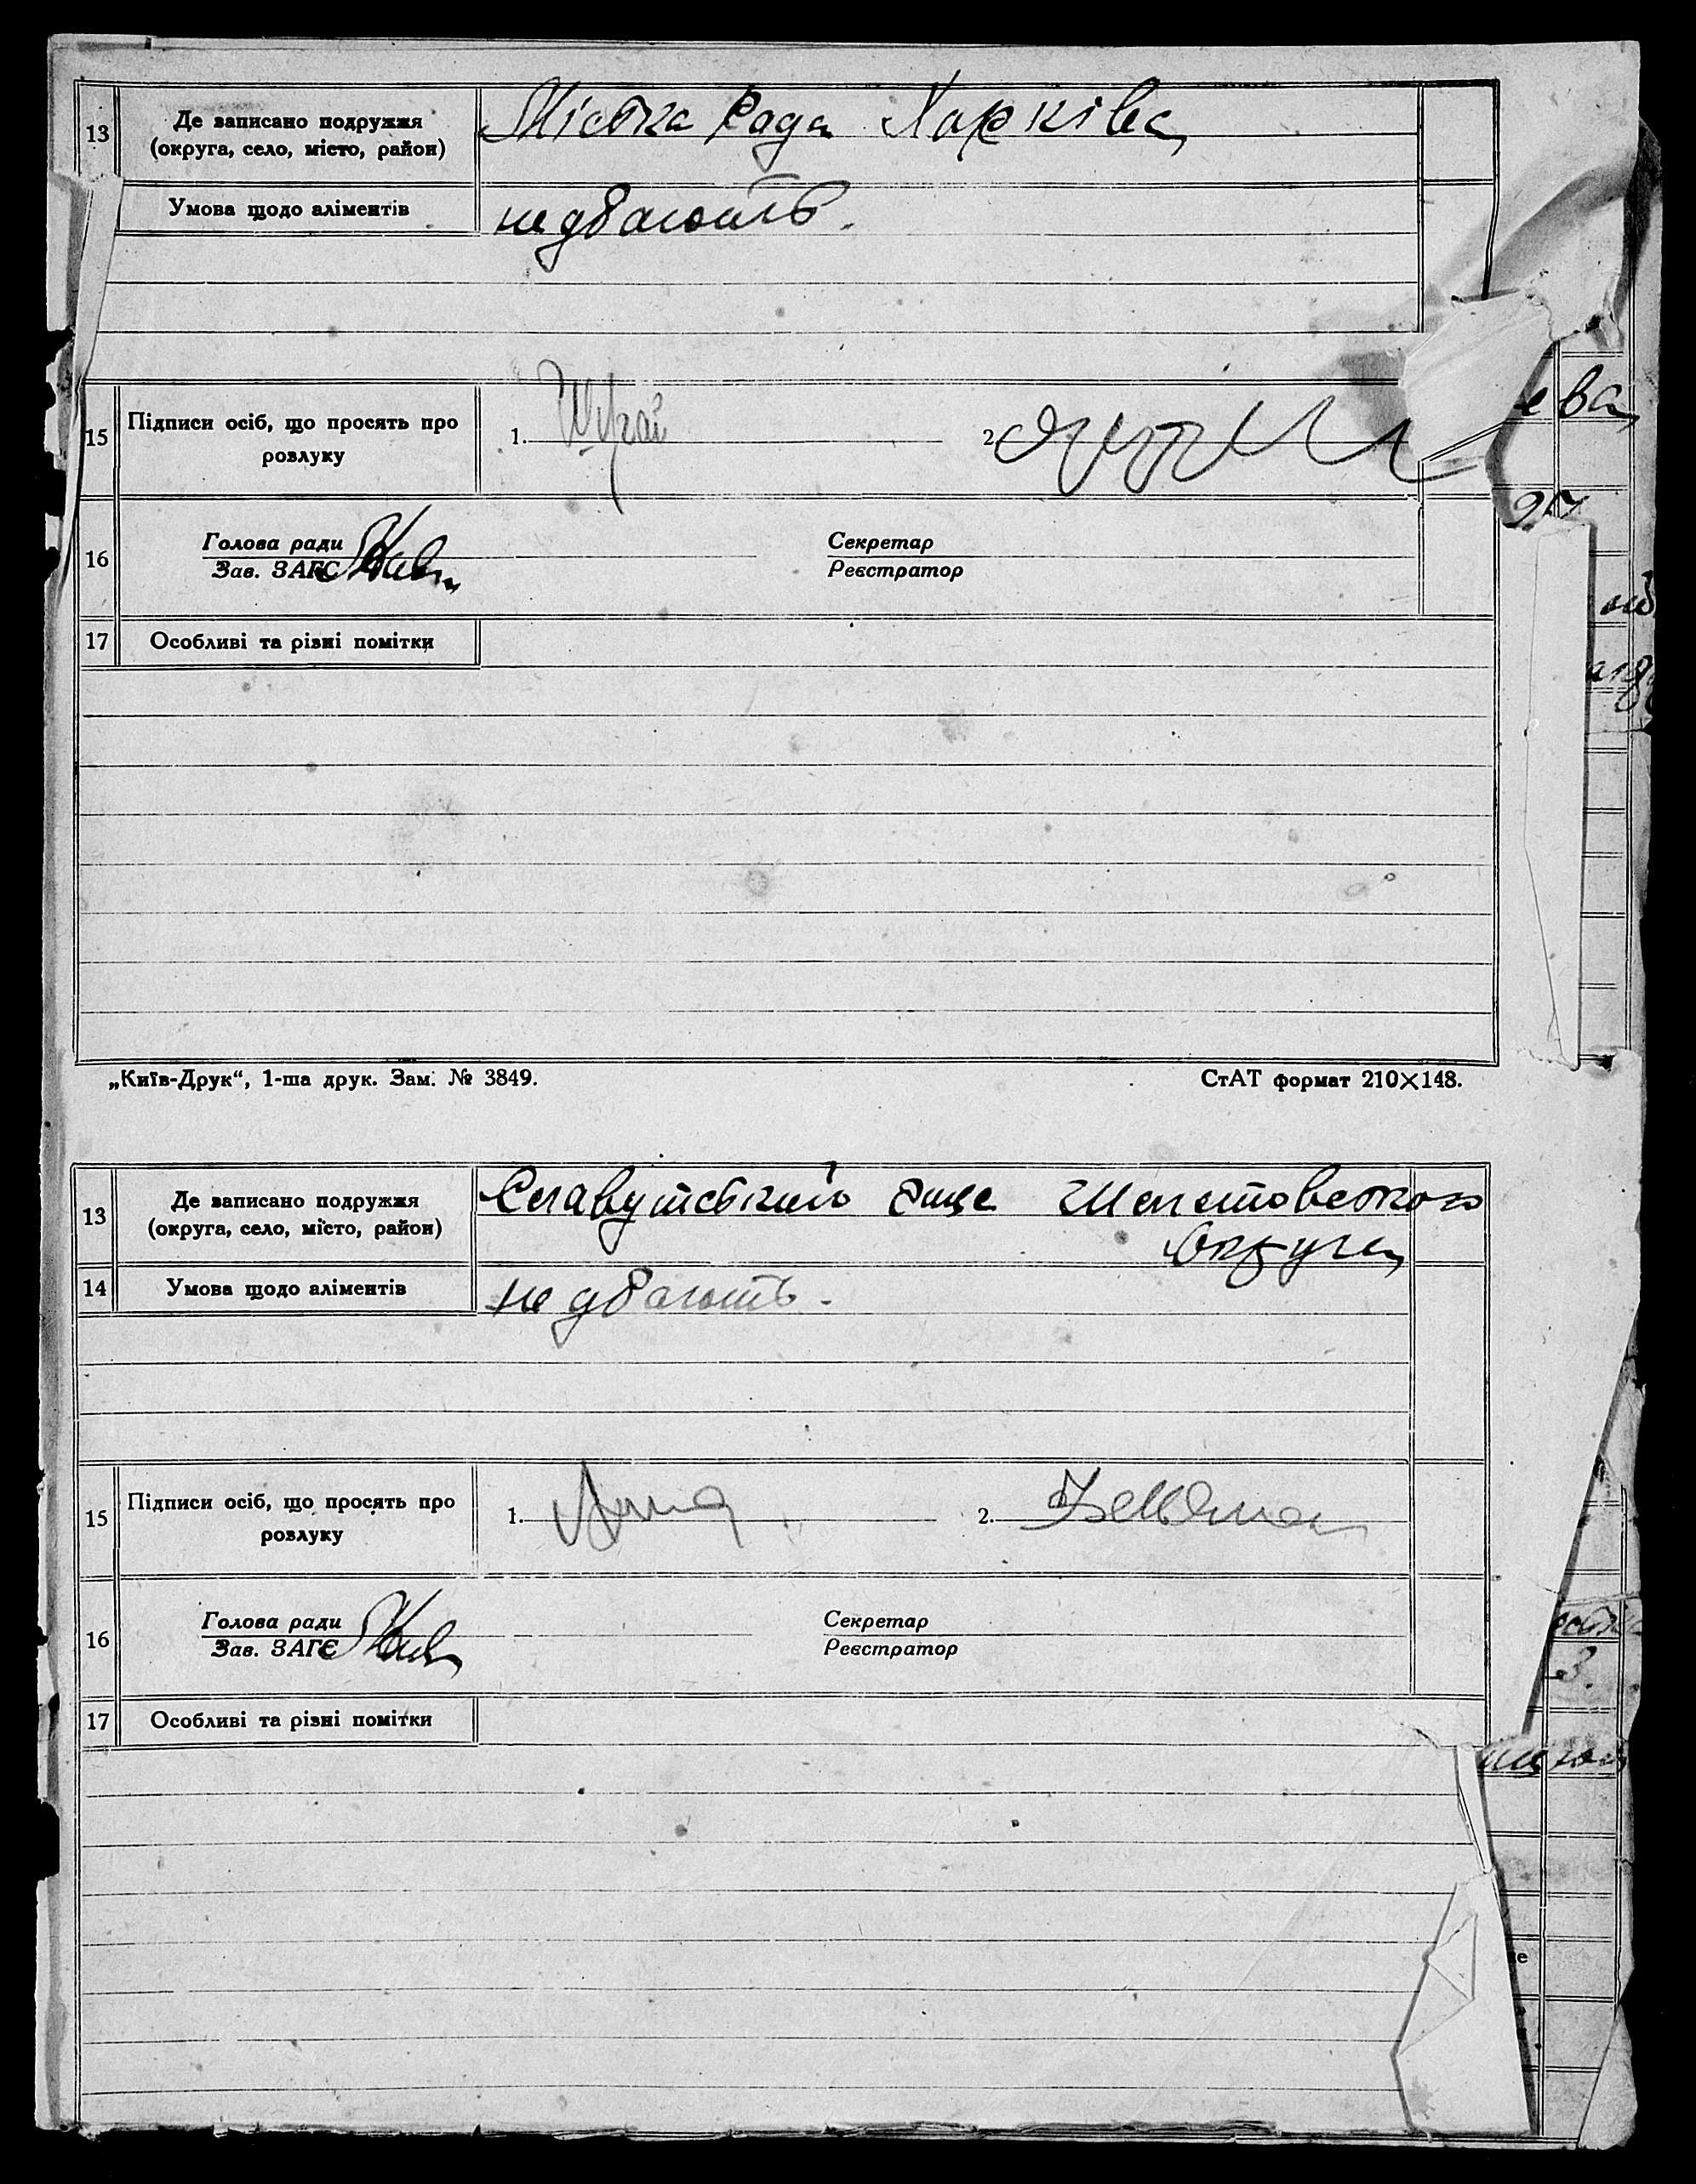 13
Де записано подружжя
(округа, село, місто, район)
Міська Рада Харківа
Умова щодо аліментів
не дбають.
15
Підписи осіб, що просять про
розлуку
1.
2.
16
Голова ради
Зав. ЗАГС
Секретар
Реєстратор
17
Особливі та різні помітки
„Київ-Друк“, 1-ша друк. Зам. № 3849.
СтАТ формат 210×148.
13
Де записано подружжя
(округа, село, місто, район)
Славутський Шепетовского
округа
14
Умова щодо аліментів
не дбають.
15
Підписи осіб, що просять про
розлуку
1.
2.
16
Голова ради
Зав. ЗАГС
Секретар
Реєстратор
17
Особливі та різні помітки